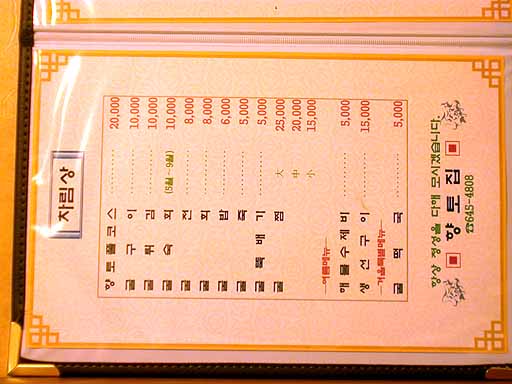 차림상
향토풀코스 ........ 20,000
굴 구 이 ........ 10,000
굴 튀 김 ........ 10,000
굴 숙 회 (5월~9월) 10,000
굴 전 ........ 8,000
굴 회 ........ 8,000
굴 밥 ........ 6,000
굴 죽 ........ 5,000
굴 뚝 배 기 ........ 5,000
굴 찜 ........ 大 25,000
中 20,000
小 15,000
여름메뉴
해 물 수 제 비 ........ 5,000
생 선 구 이 ........ 15,000
겨울특별메뉴
굴 떡 국 ........ 5,000
항상 정성을 다해 모시겠습니다.
향 토 집
☎645-4808